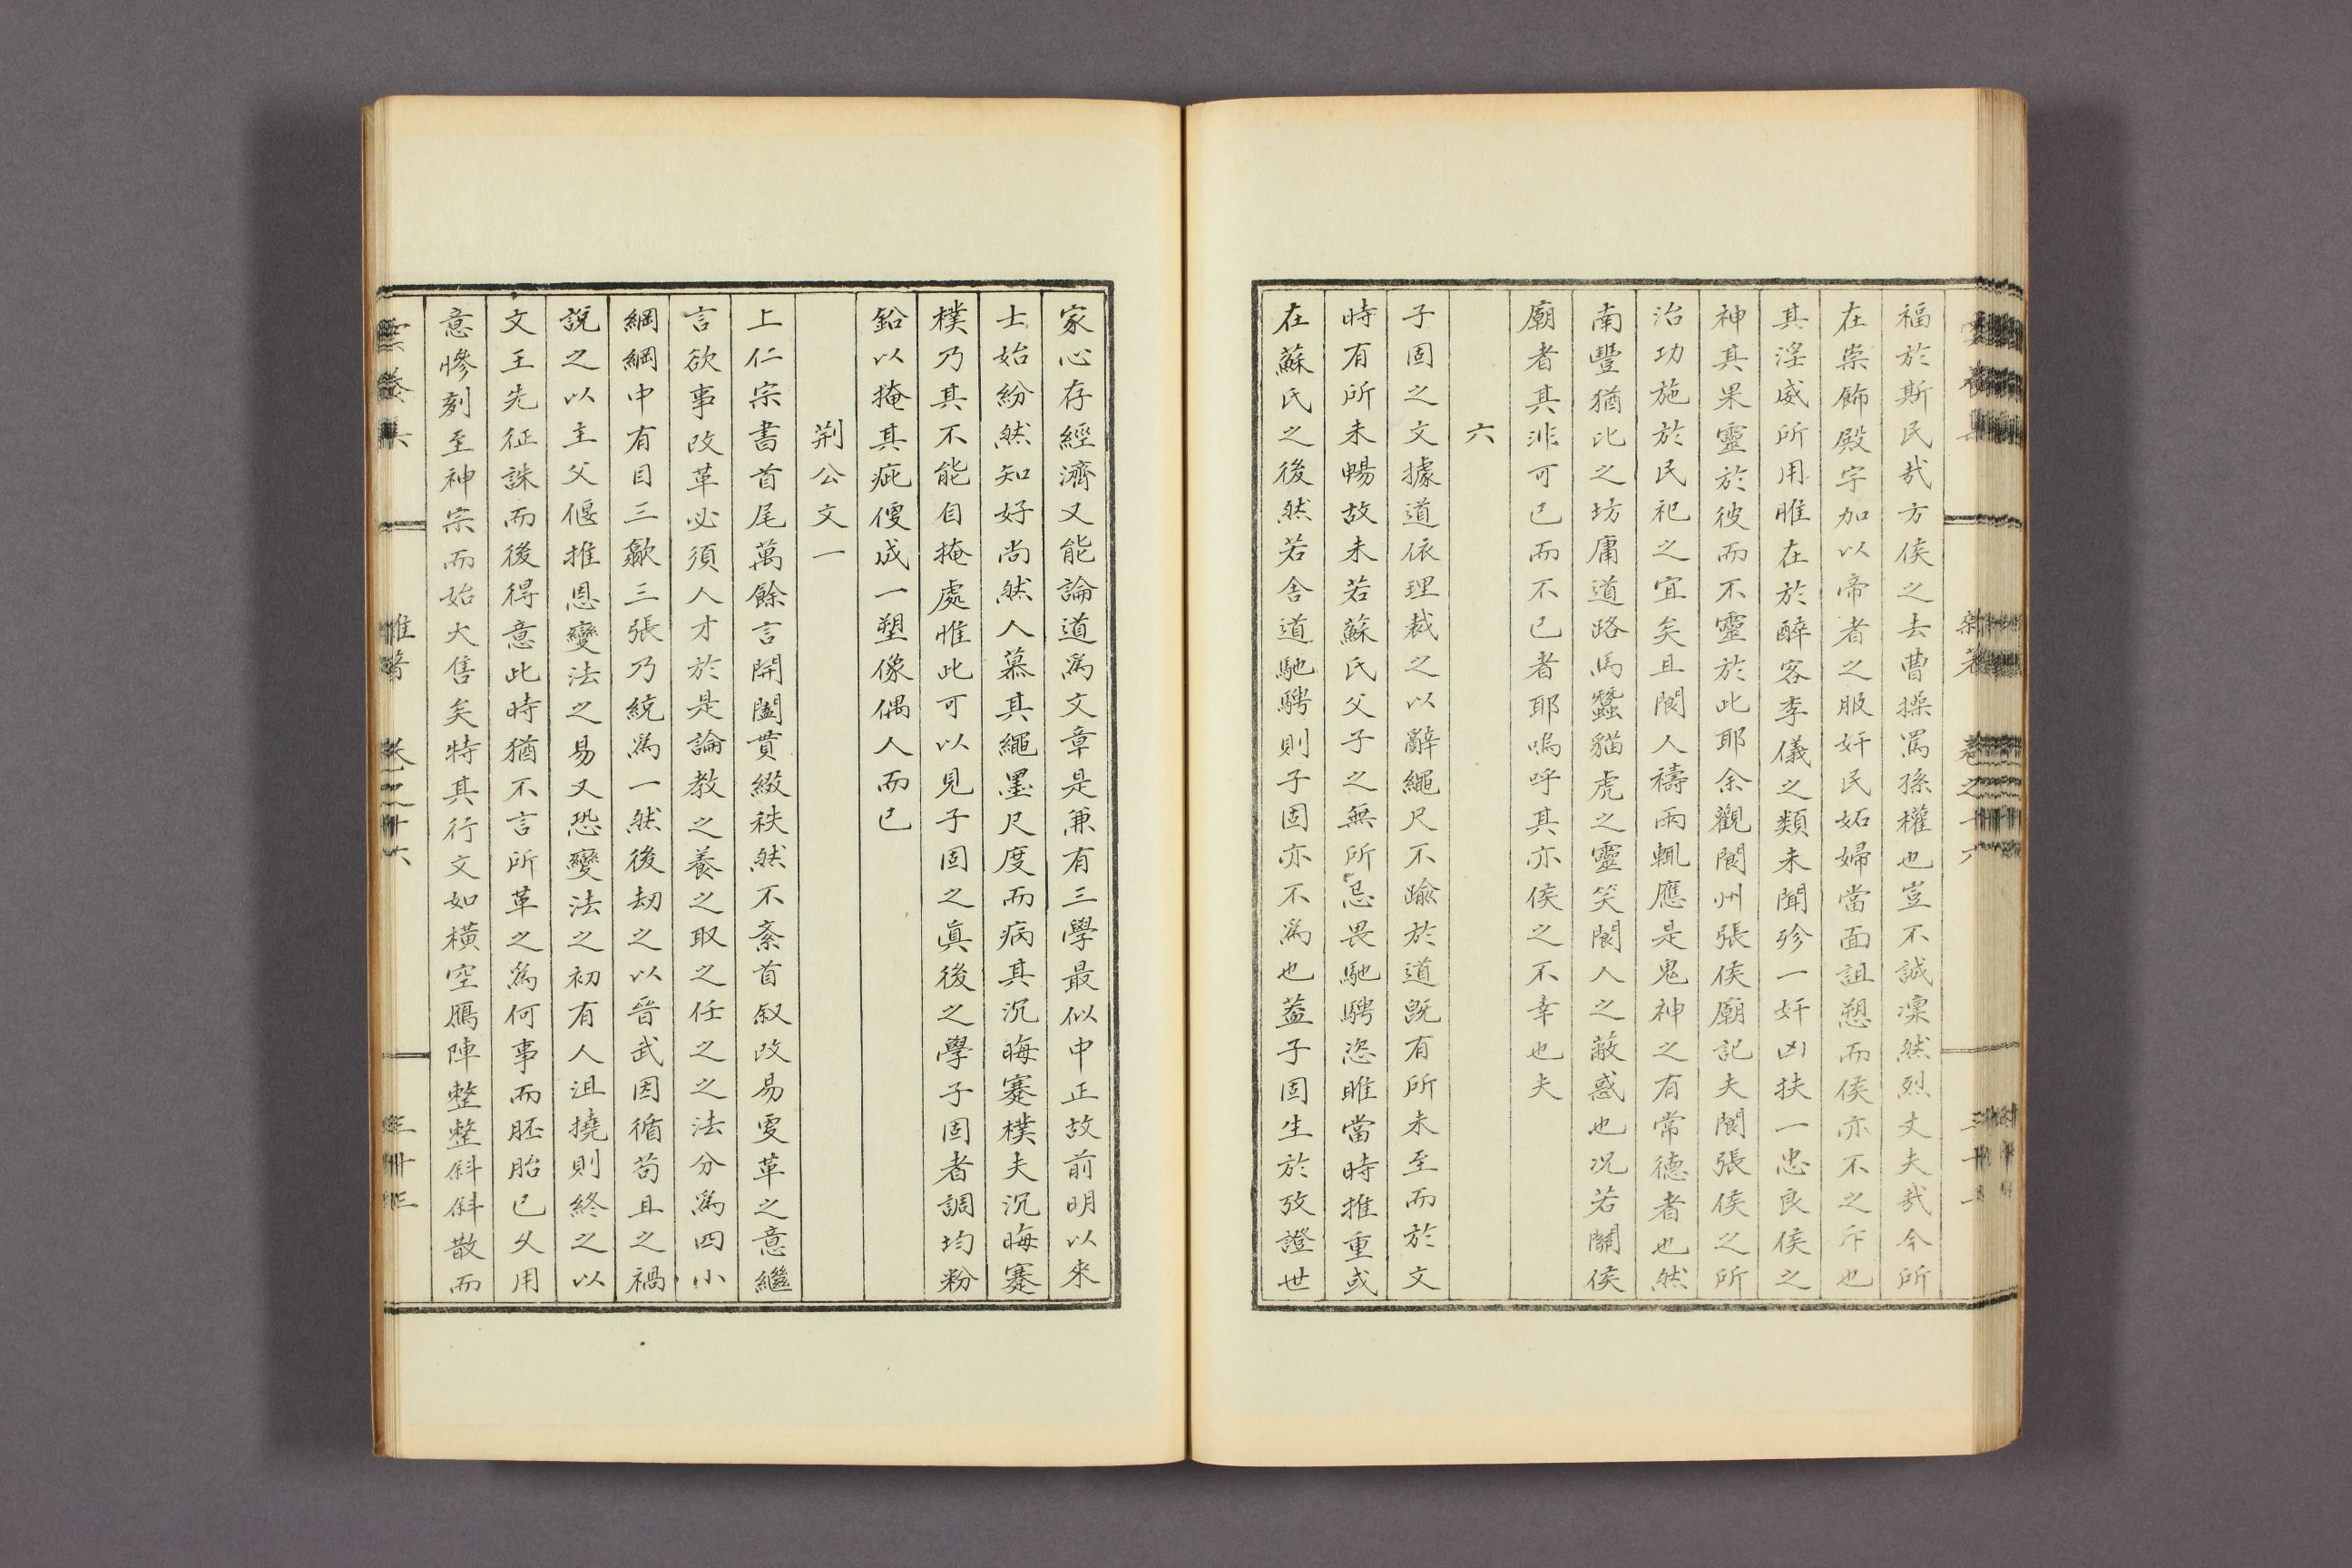 福於斯民哉方侯之去曹操罵孫權也豈不誠凜然烈丈夫哉今所
在崇飾殿宇加以帝者之服奸民妬婦當面詛愬而侯亦不之斥也
其淫威所用唯在於醉客李儀之類未聞殄一奸凶扶一忠良侯之
神其果靈於彼而不靈於此耶余觀閬州張侯廟記夫閬張侯之所
治功施於民祀之宜矣且閬人禱雨輒應是鬼神之有常德者也然
南豐猶比之坊庸道路馬蠶貓虎之靈笑閬人之蔽惑也况若關侯
廟者其非可已而不已者耶嗚呼其亦侯之不幸也夫
六
子固之文據道依理裁之以辭繩尺不踰於道旣有所未至而於文
時有所未暢故未若蘇氏父子之無所忌畏馳騁恣睢當時推重或
在蘇氏之後然若舍道馳騁則子固亦不爲也葢子固生於攷證世
家心存經濟又能論道爲文章是兼有三學最似中正故前明以來
士始紛然知好尚然人慕其繩墨尺度而病其沉晦蹇樸夫沉晦蹇
樸乃其不能自掩處惟此可以見子固之眞後之學子固者調均粉
鉛以掩其疵便成一塑像偶人而已
荆公文一
上仁宗書首尾萬餘言開闔貫綴秩然不紊首叙改易更革之意繼
言欲事改革必須人才於是論教之養之取之任之之法分爲四小
綱綱中有目三歙三張乃統爲一然後劫之以晉武因循苟且之禍
說之以主父偃推恩變法之易又恐變法之初有人沮撓則終之以
文王先征誅而後得意此時猶不言所革之爲何事而胚胎已久用
意慘刻至神宗而始大售矣特其行文如橫空鴈陣整整斜斜散而